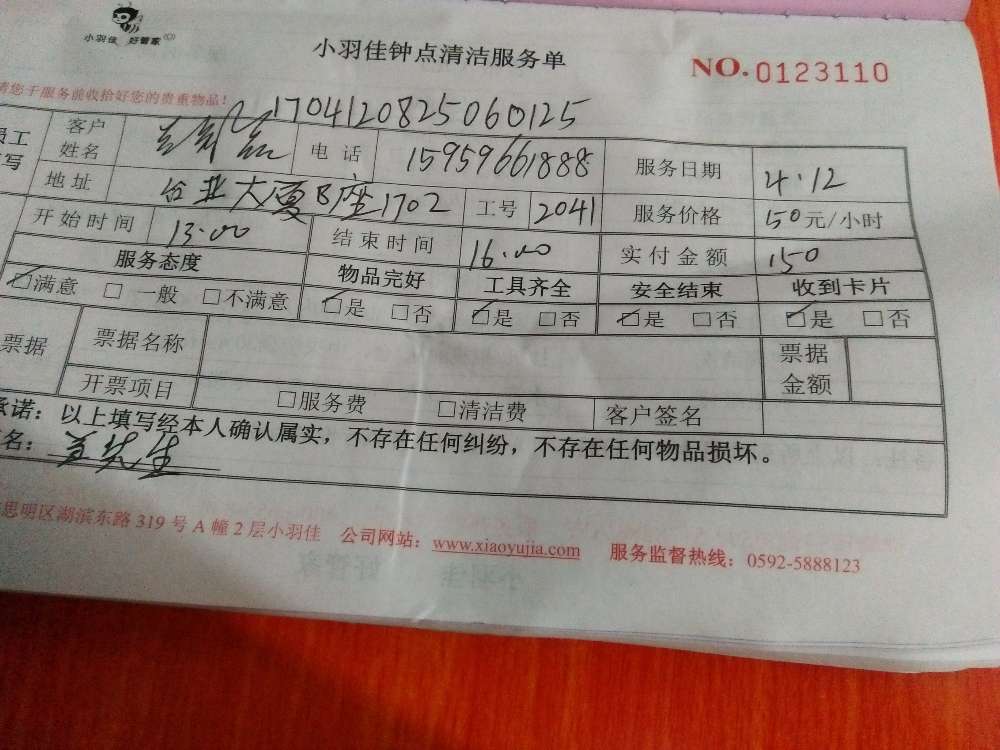 小羽佳 好管家
小羽佳钟点清洁服务单
NO.0123110
请您于服务前收拾好您的贵重物品！
1704120825060125
员工
写
客户姓名 电话 15959661888 服务日期 4.12
地址 台亚大厦B座1702 工号 2041 服务价格 150元/小时
开始时间 13.00 结束时间 16.00 实付金额 150
服务态度 物品完好 工具齐全 安全结束 收到卡片
☑满意 □一般 □不满意 ☑是 □否 ☑是 □否 ☑是 □否 ☑是 □否
票据 票据名称 票据金额
开票项目 □服务费 □清洁费 客户签名
承诺：以上填写经本人确认属实，不存在任何纠纷，不存在任何物品损坏。
名： 先生
思明区湖滨东路319号A幢2层小羽佳 公司网站：www.xiaoyujia.com 服务监督热线：0592-5888123